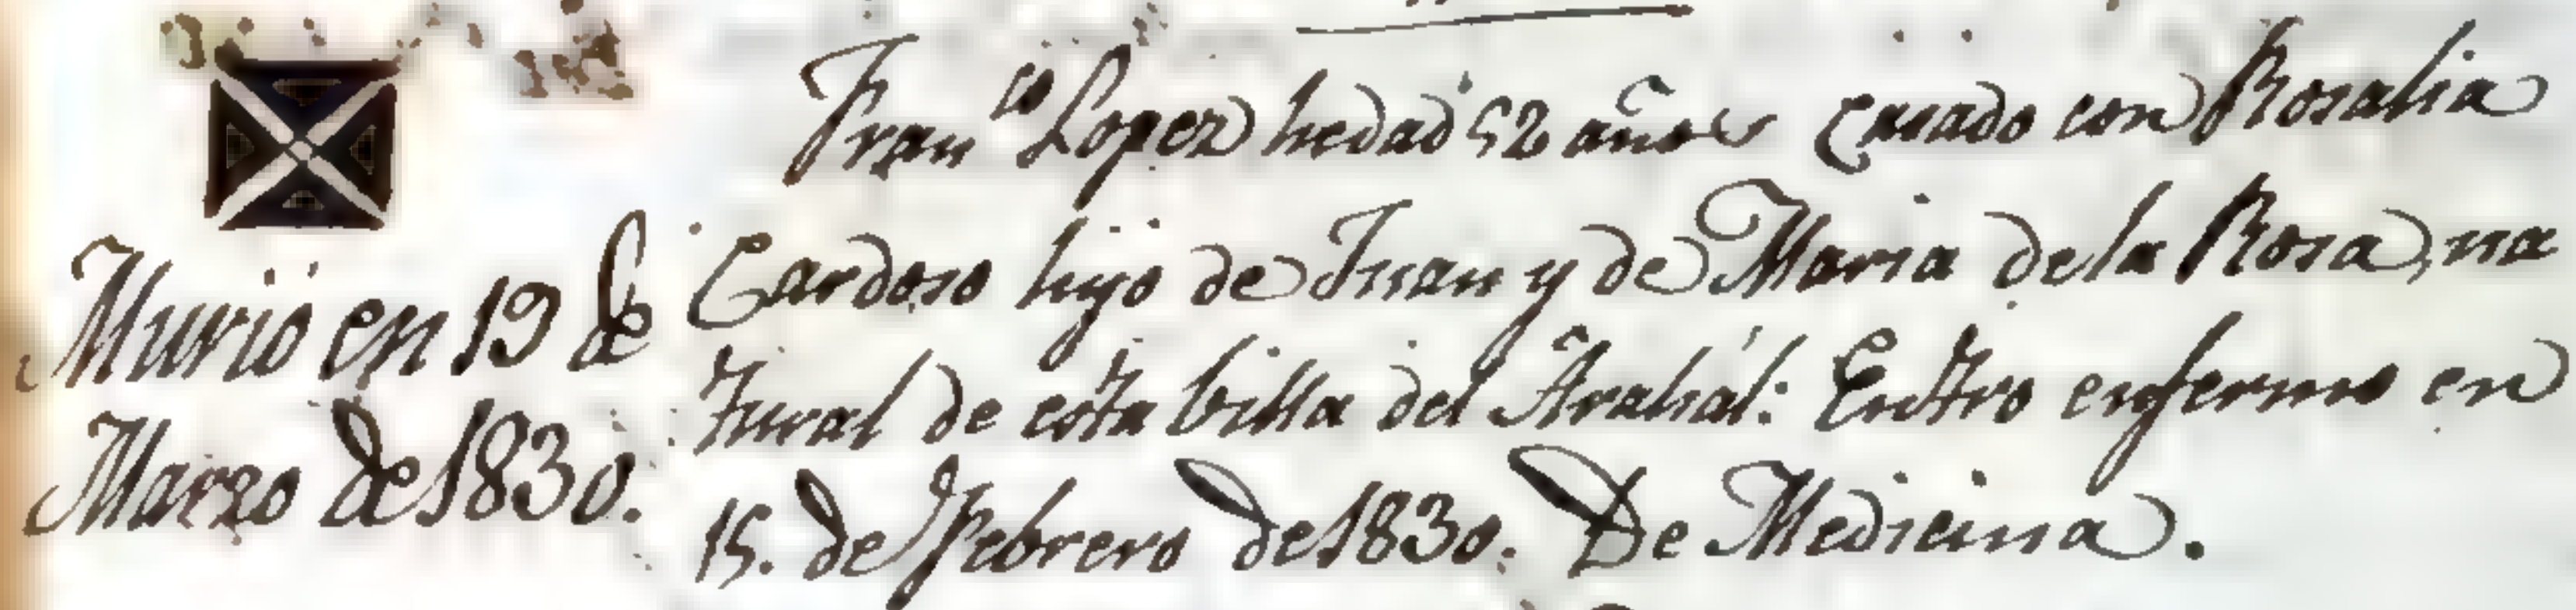 Murió en 19 de
Marzo de 1830.
Fran.co Lopez hedad 52 años casado con Rosalia
Cardoso hijo de Juan y de Maria de la Rosa, na
tural de esta billa del Arahál: Entro enfermo en
15. de Febrero de 1830. De Medicina.